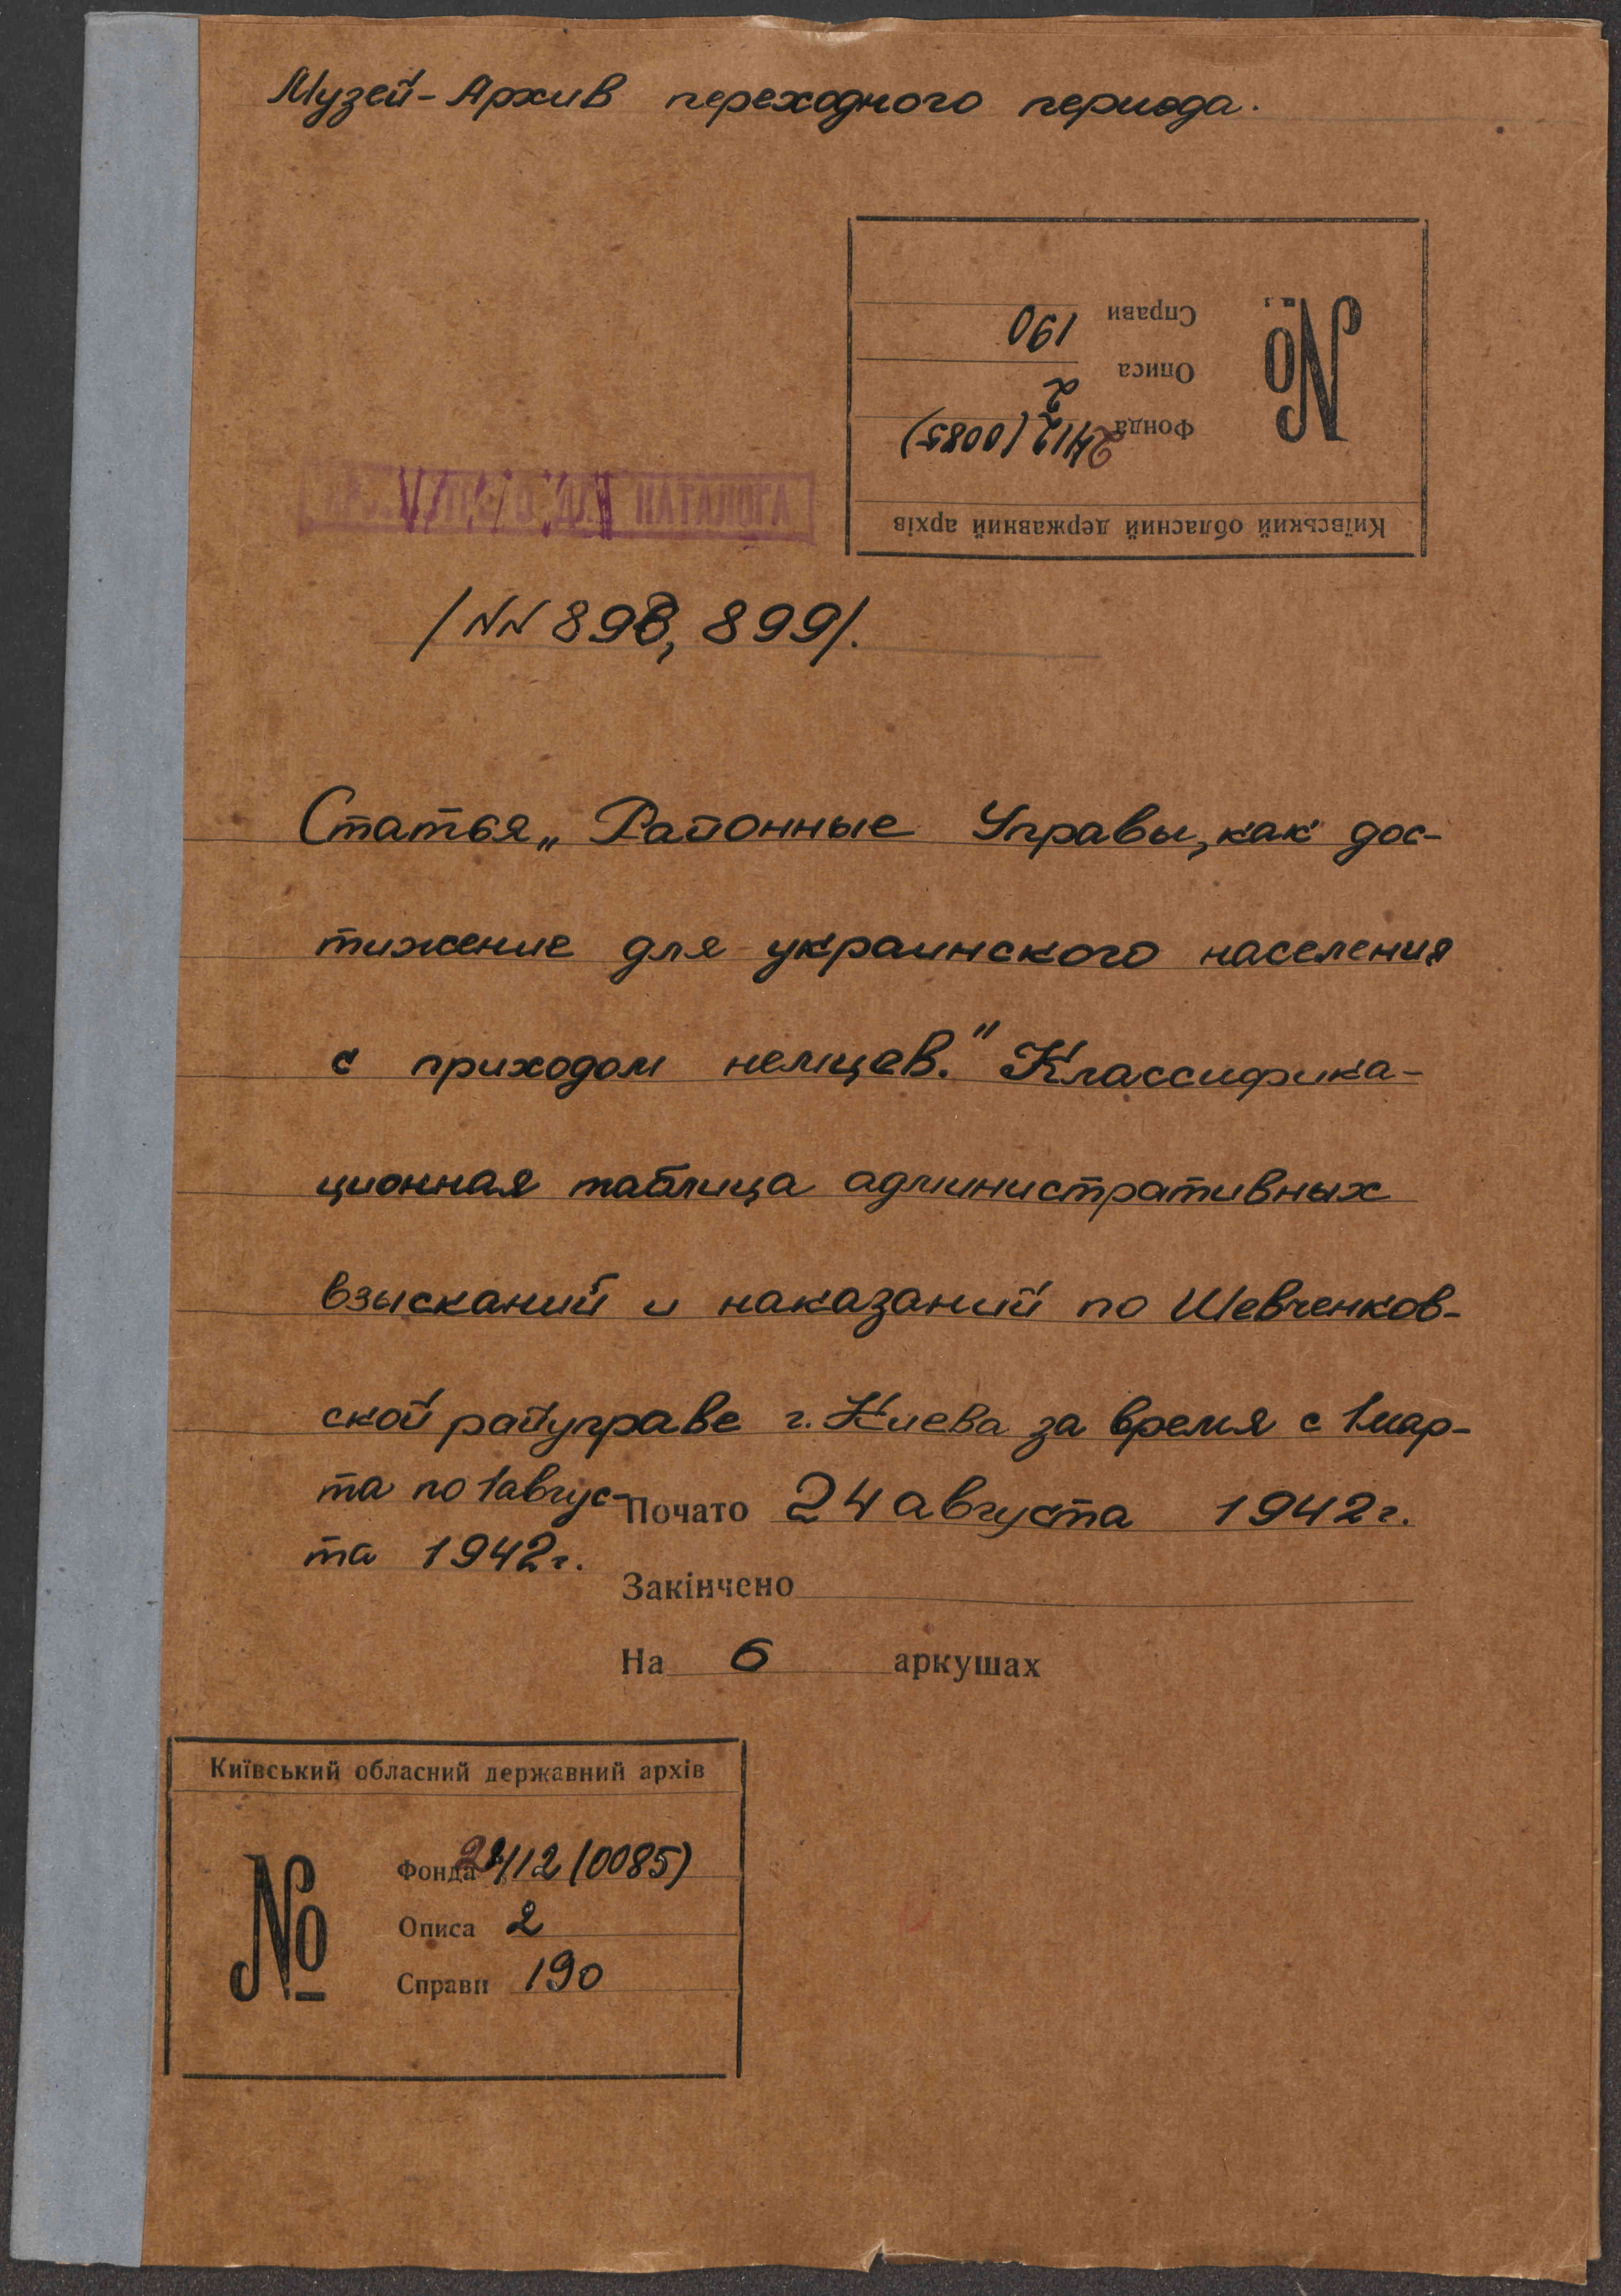 Музей-Архив переходного периода.
Київський обласний державний архів
№
Фонда 2412 (0085)
Описа 2
Справи 190
КАТАЛОГА
/NN 898, 899/.
Статья „Районные Управы, как дос-
тижение для украинского населения
с приходом немцев." Классифика-
ционная таблица административных
взысканий и наказаний по Шевченков-
ской райуправе г. Киева за время с 1 мар-
та по 1 авгус-
та 1942 г.
Почато 24 августа 1942 г.
Закінчено
На 6 аркушах
Київський обласний державний архів
№
Фонда 2412 (0085)
Описа 2
Справи 190